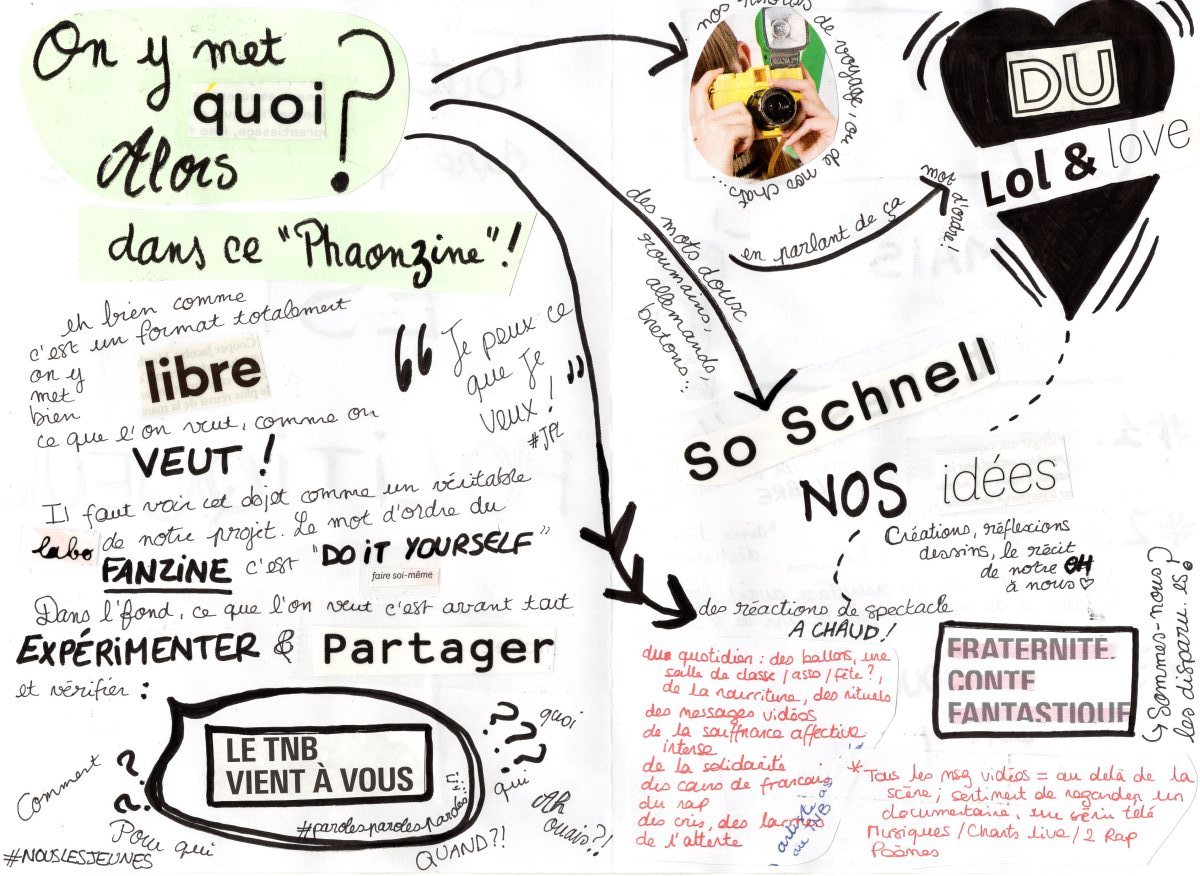 On y met
quoi ?
Alors
dans ce "Phaonzine" !
eh bien comme
c'est un format totalement
libre
on y
met
bien
ce que l'on veut, comme on
VEUT !
" Je peux ce
que Je
veux ! "
#JPL
Il faut voir cet objet comme un véritable
labo de notre projet. Le mot d'ordre du
FANZINE c'est "DO iT YOURSELF"
faire soi-même
Dans l'fond, ce que l'on veut c'est avant tout
EXPÉRiMENTER & Partager
et vérifier :
LE TNB
VIENT À VOUS
#parolesparolesparoles
Comment ?
?
Pour qui
#NOUSLESJEUNES
QUAND?!
? ? ? ?
quoi
qui
Ah
ouais?!
nos photos de voyage, ou de nos chats...
des mots doux
roumains,
allemands,
bretons...
en parlant de ça
mot d'ordre!
DU
Lol & love
So Schnell
NOS idées
Créations, réflexions
dessins, le récit
de notre
à nous ♡
des réactions de spectacle
A CHAUD !
du quotidien : des ballons, une
salle de classe / asso / fête ?,
de la nourriture, des rituels
des messages vidéos
de la souffrance affective
intense
de la solidarité
des cours de français
du rap
des cris, des
de l'attente
au TNB
FRATERNITÉ.
CONTE
FANTASTIQUE
↳ Sommes-nous
les disparu.es?
* Tous les msg vidéos = au delà de la
scène ; sentiment de regarder un
documentaire, une série télé
Musiques / Chants live / 2 Rap
Poèmes